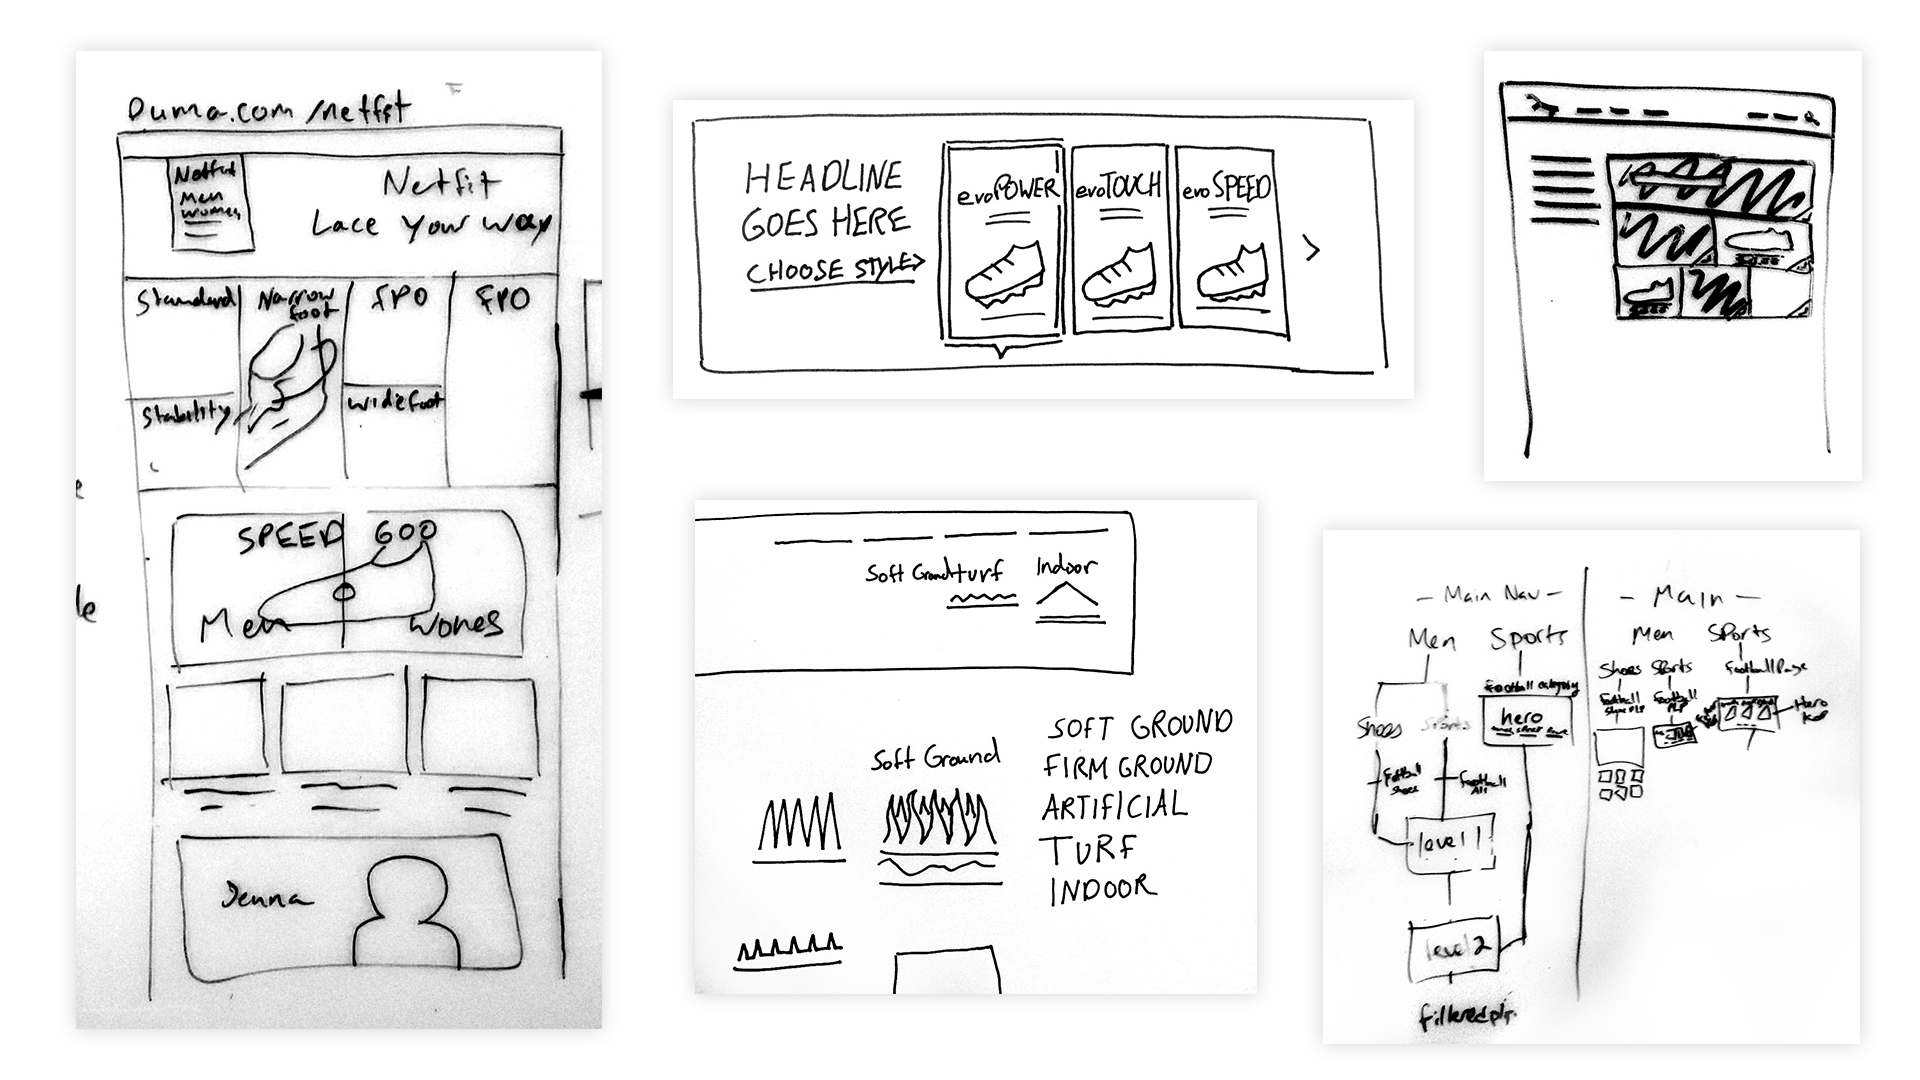 Puma.com/netfit
Netfit
Men
Women
Netfit
Lace Your Way
Standard
Narrow
foot
FPO
FPO
Stability
widefoot
SPEED 600
Men
Jenna
HEADLINE
GOES HERE
CHOOSE STYLE>
evoPOWER
evoTOUCH
evoSPEED
>
Soft Ground
turf
Indoor
Soft Ground
SOFT GROUND
FIRM GROUND
ARTIFICIAL
TURF
INDOOR
- Main Nav -
Men
Sports
football category
Shoes
Sports
hero
football
shoes
football
All
level 1
level 2
- Main -
Men
Sports
Shoes
Sports
football Page
football
football
Hero